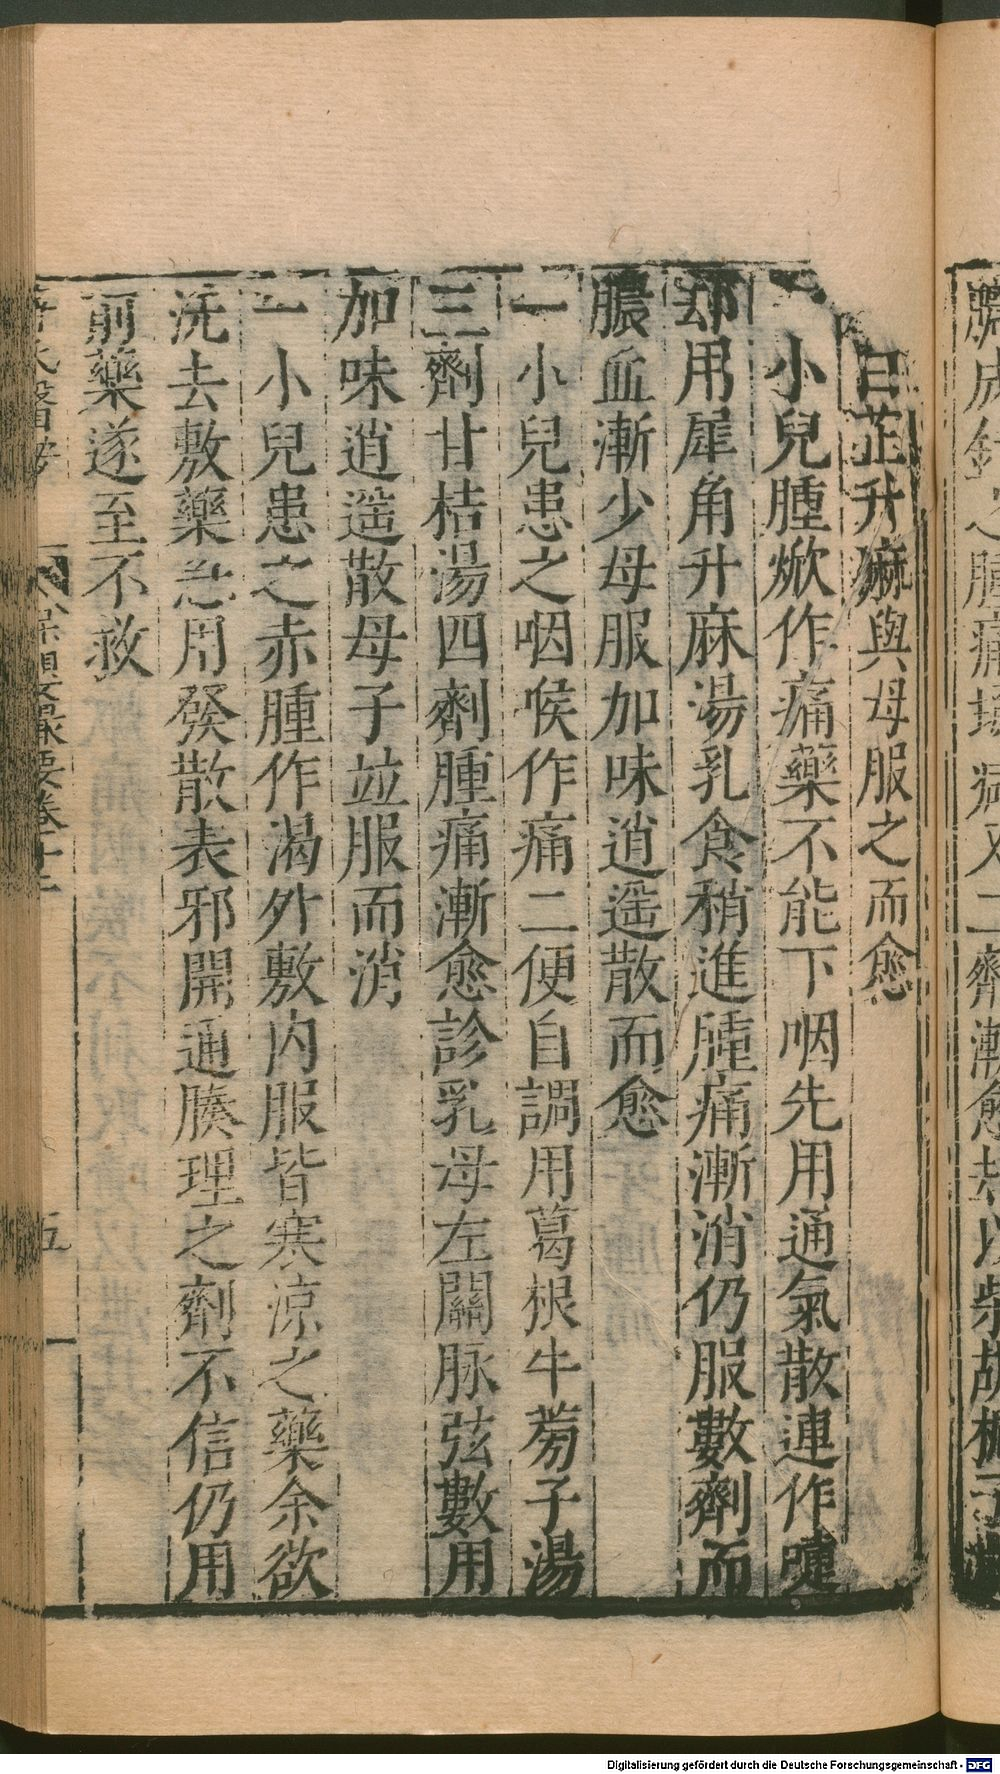 白芷升麻與母服之而愈
小兒腫焮作痛藥不能下咽先用通氣散連作嚏
却用犀角升麻湯乳食稍進腫痛漸消仍服數劑而
膿血漸少母服加味逍遥散而愈
一小兒患之咽喉作痛二便自調用葛根牛蒡子湯
三劑甘桔湯四劑腫痛漸愈診乳母左關脉弦數用
加味逍遥散母子並服而消
一小兒患之赤腫作渴外敷内服皆寒涼之藥余欲
洗去敷藥急用發散表邪開通腠理之劑不信仍用
前藥遂至不救
保嬰
卷十二
五
Digitalisierung gefördert durch die Deutsche Forschungsgemeinschaft - DFG